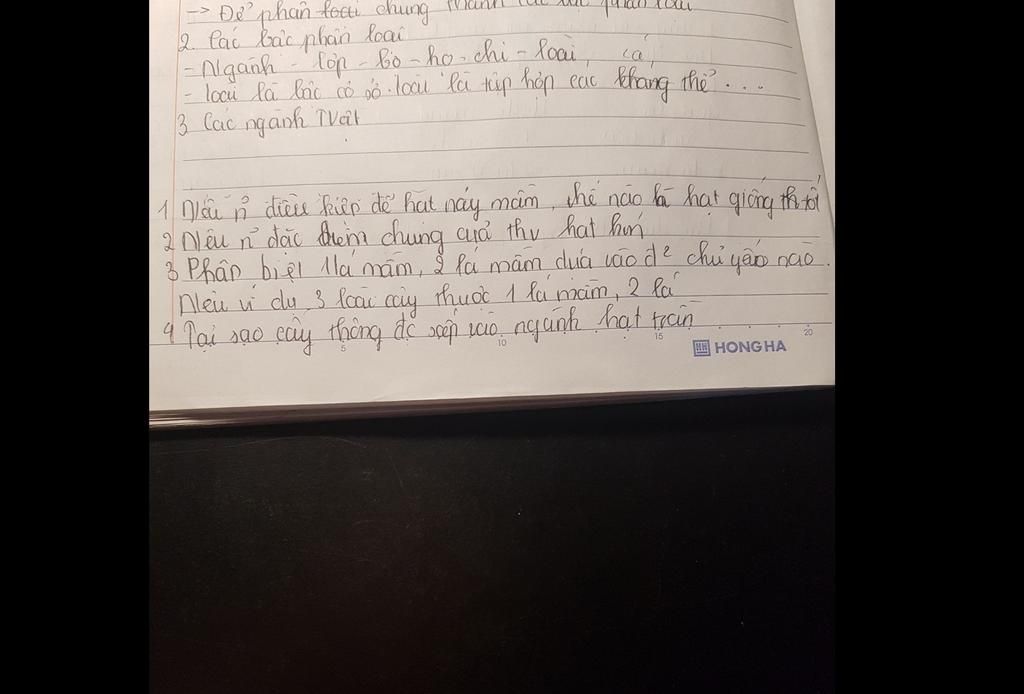 -> Để phân loại chung thành các bậc phân loại
2. Các bậc phân loại
- Ngành - lớp - bộ - họ - chi - loài, cá,
- loài là bậc cơ sở. loài là tập hợp các thang thể ...
3 Các ngành TVật
1 Nêu n~ điều kiện để hạt nảy mầm, thế nào là hạt giống th tốt
2 Nêu n~ đặc điểm chung của thv hạt kín
3 Phân biệt 1 lá mầm, 2 lá mầm dựa vào đ² chủ yếu nào.
Nêu ví dụ 3 loài cây thuộc 1 lá mầm, 2 lá
4 Tại sao cây thông đc xếp vào ngành hạt trần
5 10 15 20
HONG HA